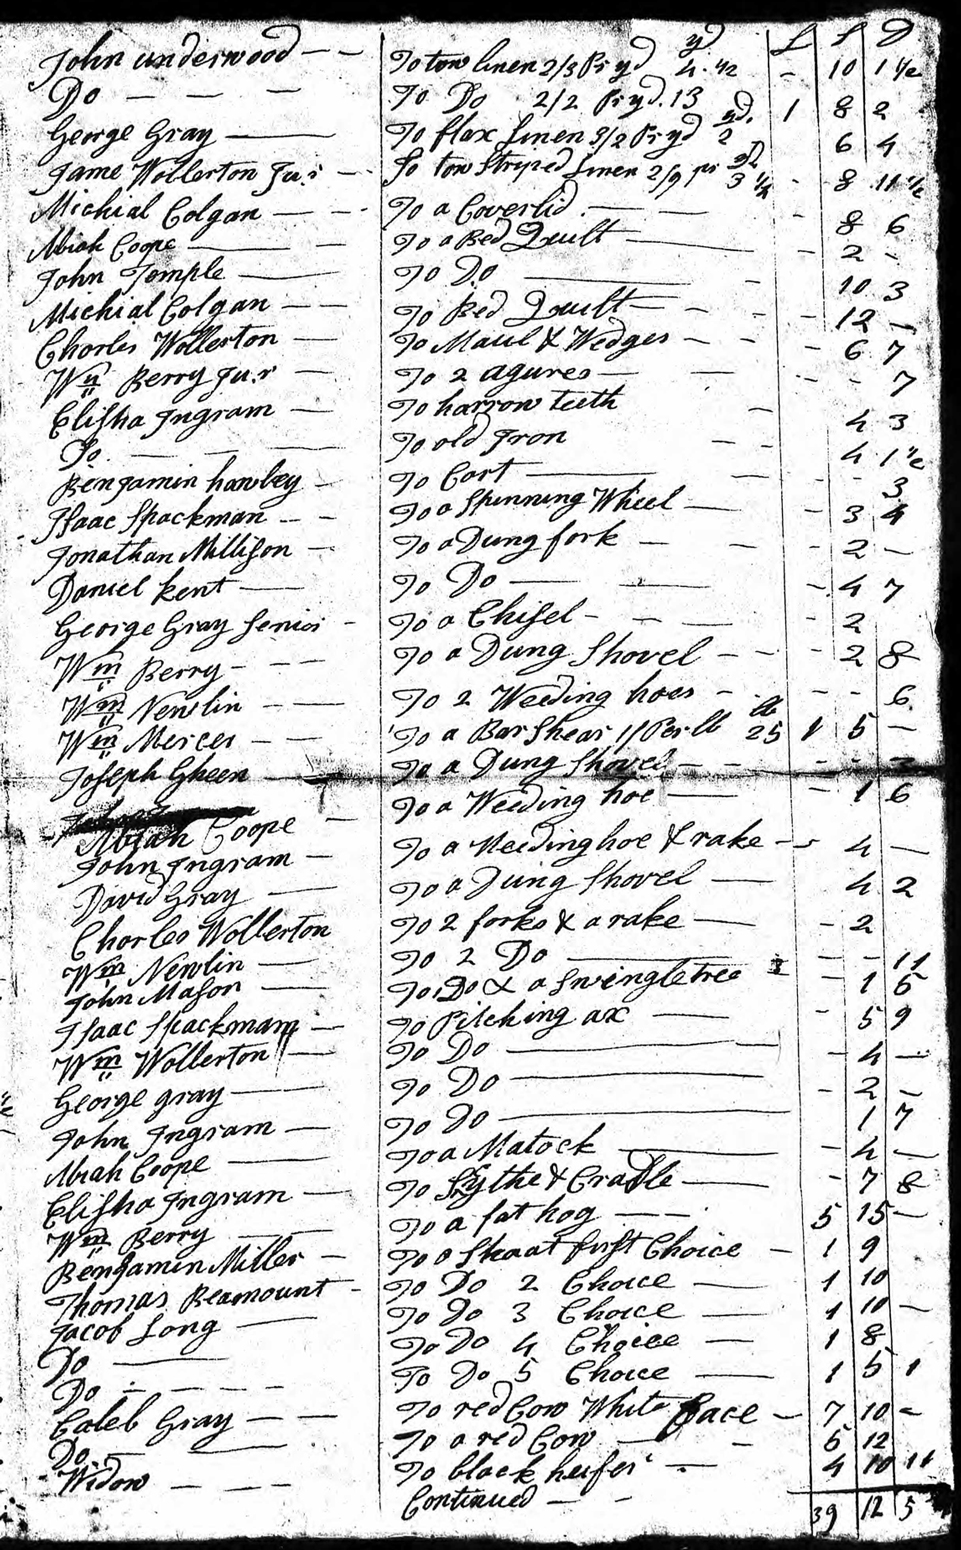 yd £ S D
John underwood — — To tow linen 2/3 Pr yd 4 1/2 - 10 1 1/2
Do — — — To Do 2/2 Pr yd. 13 1 8 2
George Gray — To flax linen 3/2 Pr yd yd. 2 6 4
Jame Wollerton Jur — To tow Striped linen 2/9 pr yd 3 1/4 - 8 11 1/2
Michial Colgan — — To a Coverlid — — - 8 6
Abiah Coope — To a Bed Quilt — - 2 -
John Temple — To Do — - 10 3
Michial Colgan — To Bed Quilt — - - 12 -
Charles Wollerton — To Maul & Wedges - - - 6 7
Wm Berry Jur — To 2 agures — - - 7
Elisha Ingram — To harrow teeth - 4 3
Do. — — To old Iron - - 4 1 1/2
Benjamin hawley — To Cart — - - 3
Isaac Spackman - - To a Spinning Wheel — - 3 4
Jonathan Millison - To a Dung fork — - - 2 -
Daniel kent — To Do — — - 4 7
George Gray Senior - To a Chisel - - - - 2
Wm Berry - - — To a Dung Shovel - - - 2 8
Wm Newlin - — To 2 Weeding hoes - - - - 6
Wm Mercer — — To a Bar Shear 1/ Per lb lb 25 1 5 -
Joseph Gheen — To a Dung Shovel - - - -
Abiah Coope — To a Weeding hoe — - 1 6
John Ingram — To a Weeding hoe & rake - - 4 -
David Gray — To a Dung Shovel — 4 2
Charles Wollerton To 2 forks & a rake — - 2
Wm Newlin — To 2 Do — - - 11
John Mason — To Do & a Swingletree - 1 6
Isaac Spackman — To Pitching ax — - 5 9
Wm Wollerton — To Do — - 4 -
George gray — To Do — - 2 -
John Ingram — To Do — 1 7
Abiah Coope — To a Matock — - 4 -
Elisha Ingram — To Sythe & Cradle — - 7 8
Wm Berry — To a fat hog — — 5 15 -
Benjamin Miller — To a Shoat first Choice - 1 9
Thomas Beamount - To Do 2 Choice — 1 10
Jacob Long — To Do 3 Choice — 1 10 -
Do — To Do 4 Choice — 1 8
Do - - - - To Do 5 Choice — 1 5 1
Caleb Gray — — To red Cow White face - 7 10 -
Do. — To a red Cow — - 6 12
Widow — — — To black heifer - 4 10 11
Continued — - 39 12 5